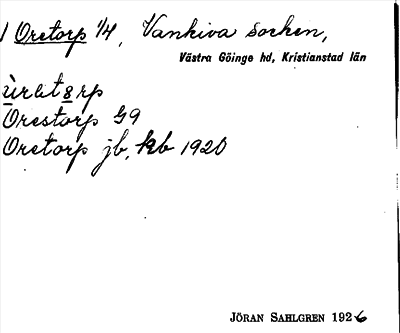 1 Oretorp 1/4, Vankiva Socken,
Västra Göinge hd, Kristianstad län
Orestorp G9
Oretorp jb, kb 1920
JÖRAN SAHLGREN 1926